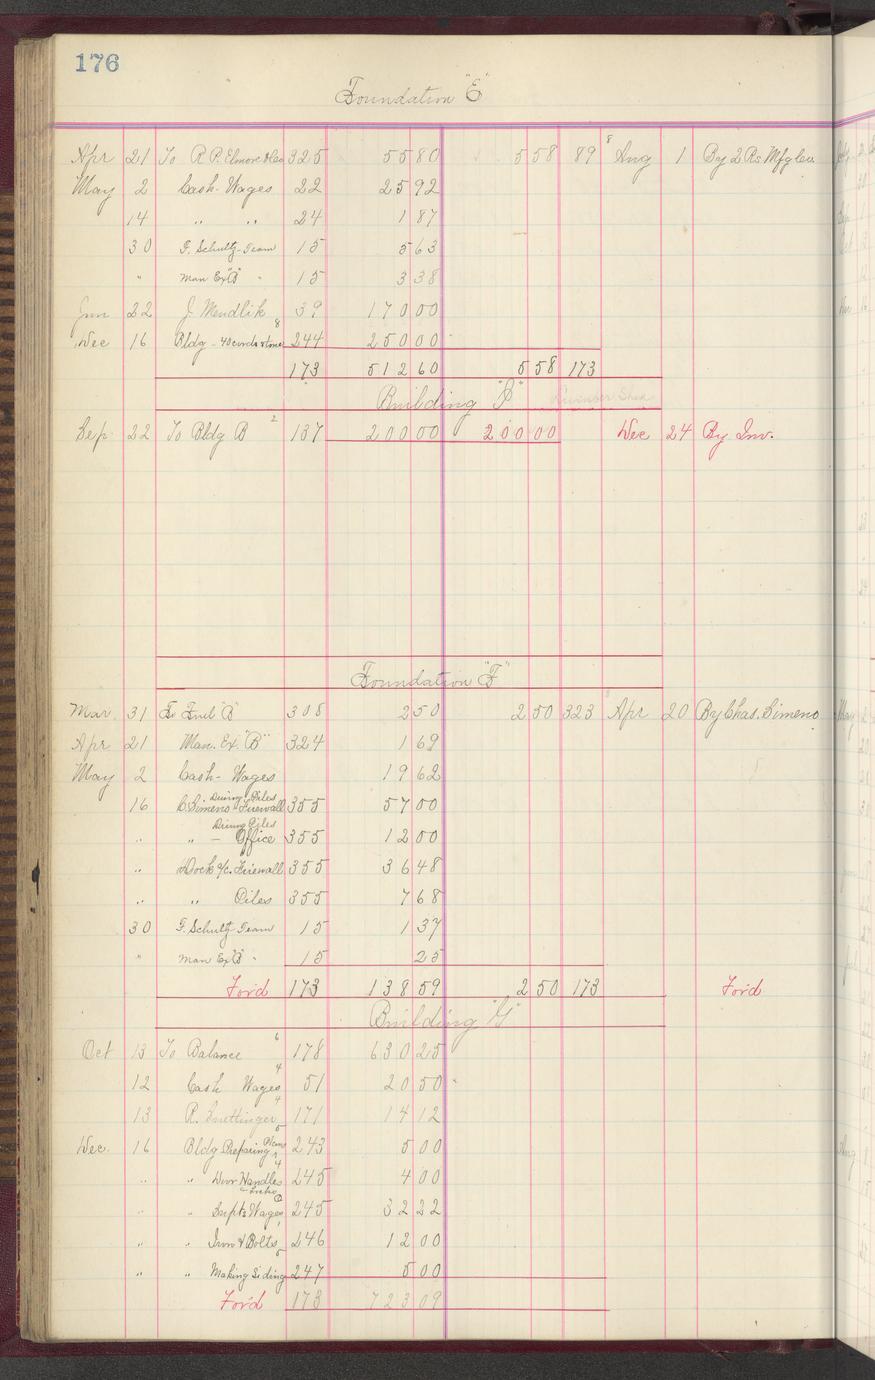 176
Foundation "E"
Apr 21 To R.P. Elmore & Co 325 55 80 5 58 89 8 Aug 1 By 2 Rs Mfg Co
May 2 Cash - Wages 22 25 92
14 " " 24 1 87
30 F. Schultz - Team 15 5 63
" Man Ex "B" " 15 3 38
Jun 22 J. Mendlik 8 39 170 00
Dec 16 Bldg - 40 cords stone 244 250 00
173 512 60 5 58 173
Building "F" Lumber Shed
Sep 22 To Bldg B 2 137 200 00 200 00 Dec 24 By Inv.
Foundation "F"
Mar. 31 To Fuel "B" 308 2 50 2 50 323 8 Apr 20 By Chas. Simeno
Apr 21 Man. Ex. "B" 324 1 69
May 2 Cash - Wages 19 62
16 C. Simeno Driving Piles Firewall 355 57 00
" " - Driving Piles Office 355 12 00
" Dock a/c. Firewall 355 36 48
" " Piles 355 7 68
30 F. Schultz Team 15 1 37
" Man Ex "B" " 15 25
For'd 173 138 59 2 50 173 For'd
Building "G"
Oct 13 To Balance 6 178 630 25
12 Cash Wages 4 51 20 50
13 R. 4 171 14 12
Dec. 16 Bldg Preparing 5 243 5 00
" " Door Handles 4 245 4 00
" " Supts Wages 245 32 22
" " Iron & Bolts 1 246 12 00
" " Making Siding 5 247 5 00
For'd 178 723 09